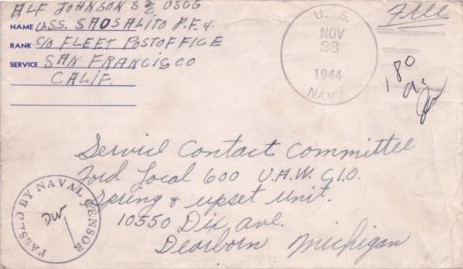 ALF JOHNSON S 2/c USCG
NAME U.S.S. SAUSALITO P.F. 4
RANK C/O FLEET POST OFFICE
SERVICE SAN FRANCISCO
CALIF.
U. S.
NOV
28
1944
NAVY
Free
180
Service Contact Committee
Ford Local 600 U.A.W. C.I.O.
Spring & upset unit.
10550 Dix ave.
Dearborn Michigan
PASSED BY NAVAL CENSOR
DW